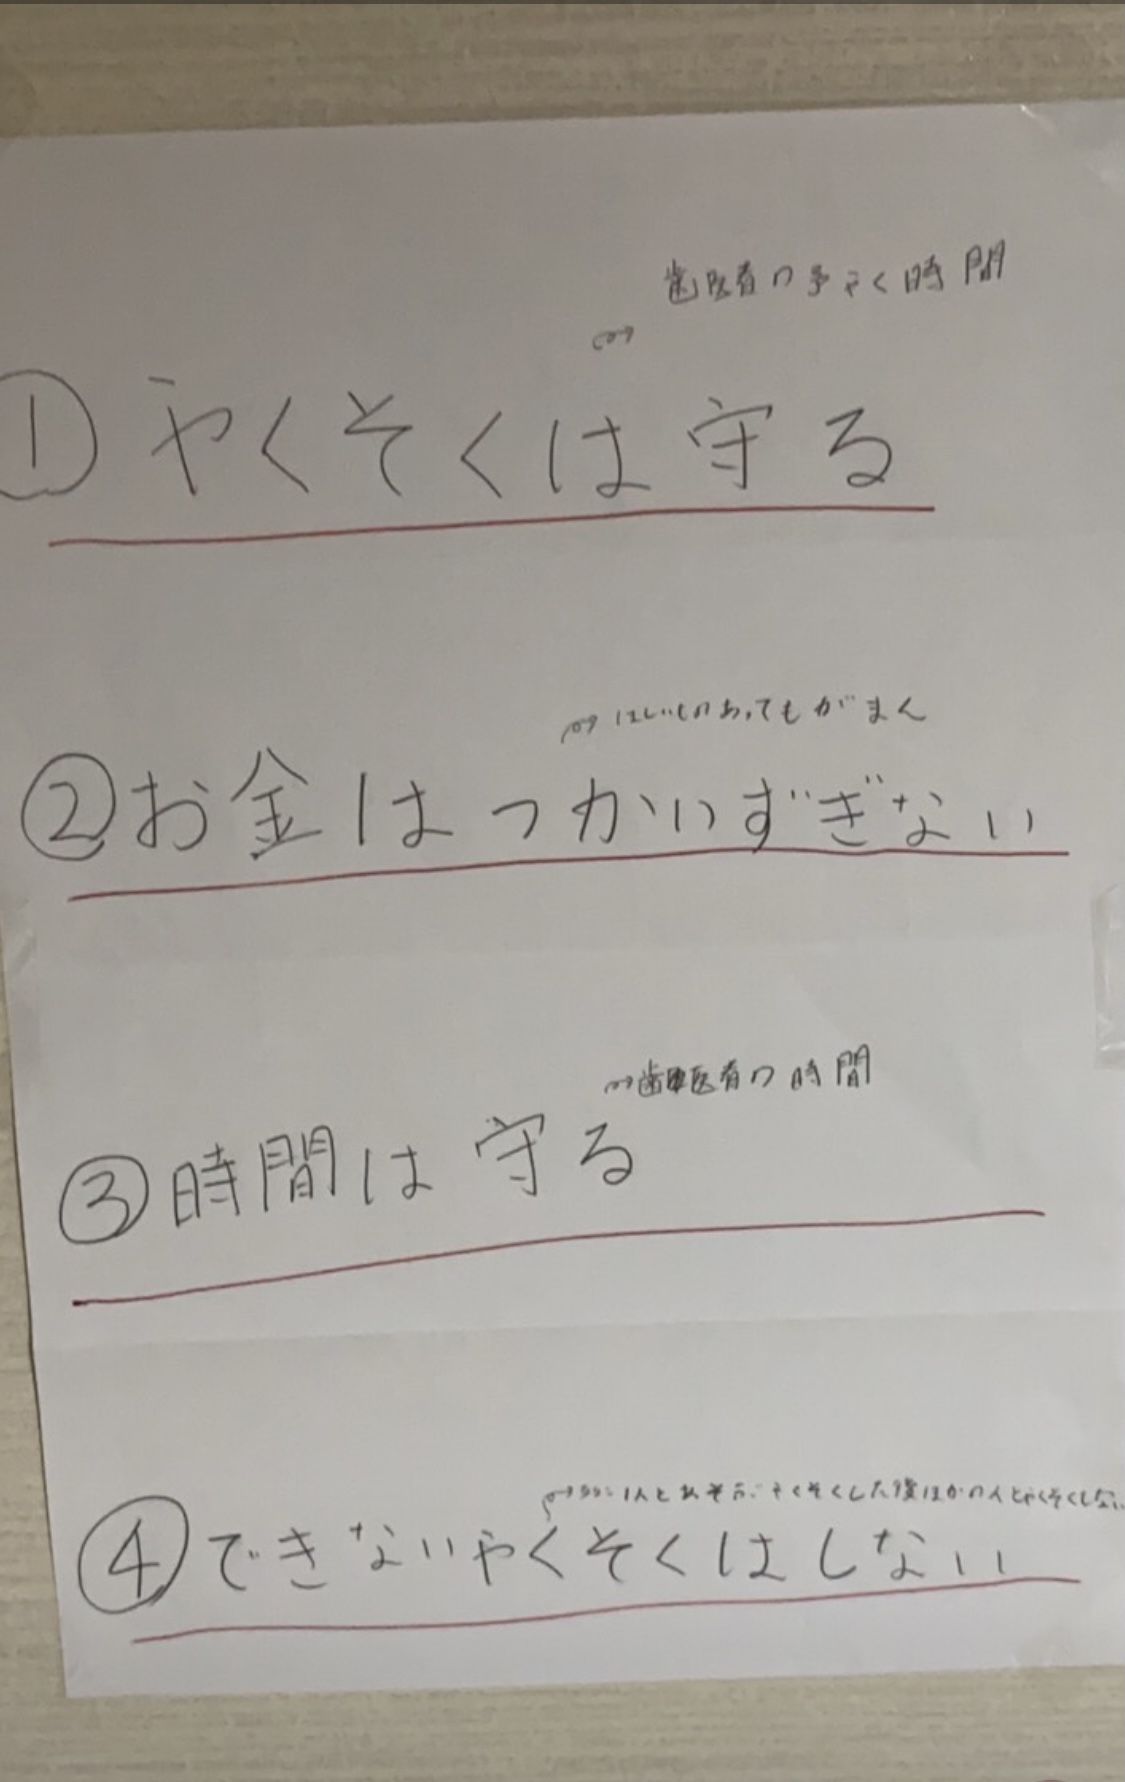 歯医者の予やく時間
①やくそくは守る
ほしいものあってもがまん
②お金はつかいずぎない
歯医者の時間
③時間は守る
人とあそぶやくそくした後ほかの人とやくそくしない
④できないやくそくはしない